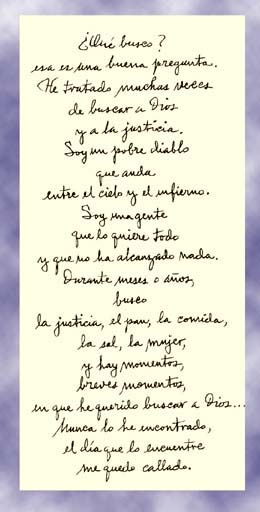 ¿Qué busco?
esa es una buena pregunta.
He tratado muchas veces
de buscar a Dios
y a la justicia.
Soy un pobre diablo
que anda
entre el cielo y el infierno.
Soy una gente
que lo quiere todo
y que no ha alcanzado nada.
Durante meses o años,
busco
la justicia, el pan, la comida,
la sal, la mujer,
y hay momentos,
breves momentos,
en que he querido buscar a Dios...
Nunca lo he encontrado,
el día que lo encuentre
me quedo callado.